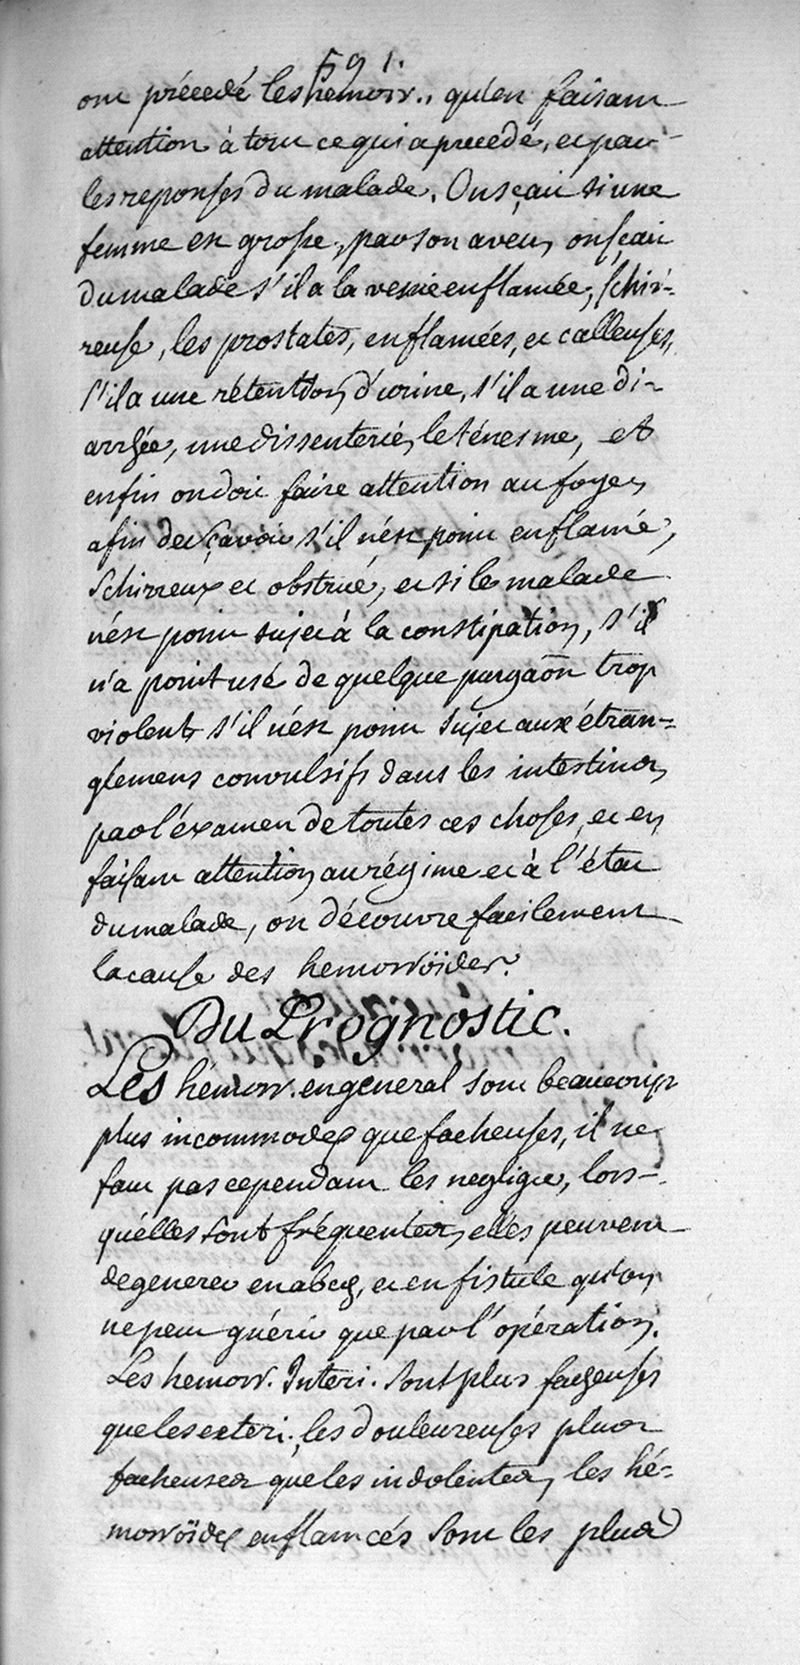 591.
ont précedé les hemorr., qu'en faisant
attention à tout ce qui a precedé, et par
les reponses du malade. On sçait si une
femme est grosse, par son aveu, on sçait
du malade s'il a la vessie enflamée, schir-
reuse, les prostates, enflamées, et calleuses,
s'il a une rétention d'urine, s'il a une di-
arrhée, une dissenterie, le ténesme, et
enfin on doit faire attention au foye,
afin de sçavoir s'il n'est point enflamé,
schirreux et obstrué, et si le malade
n'est point sujet à la constipation, s'il
n'a point usé de quelque purgaõn trop
violent, s'il n'est point sujet aux étran=
glemens convulsifs dans les intestins,
par l'éxamen de toutes ces choses, et en
faisant attention au régime et à l'état
du malade, on découvre facilement
la cause des hemorroïdes.
Du Prognostic.
Les hémorr. en general sont beaucoup
plus incommodes que facheuses, il ne
faut pas cependant les negliger, lors-
qu'elles sont fréquentes, elles peuvent
degenerer en abcés, et en fistule qu'on
ne peut guérir que par l'opération.
Les hemorr. Interi. sont plus facheuses
que les exteri., les douleureuses plus
facheuses que les indolentes, les hé=
morroïdes enflamées sont les plus